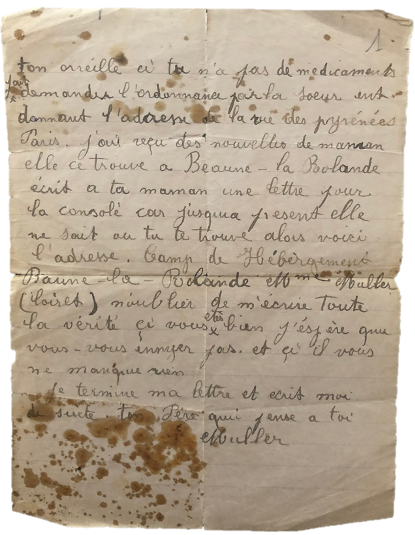 1
ton orreille ci tu n'a pas de medicaments
fait demander l'ordonnance par la soeur ent
donnant l'adresse de la rue des pyrénées
Paris. j'ai reçu des nouvelles de maman
elle ce trouve a Beaune-la Rolande
écrit a ta maman une lettre pour
la consolé car jusqua present elle
ne sait ou tu te trouve alors voici
l'adresse. Camp de Hébergement
Baune-la-Rolande Mme Muller
(Loiret) n'oublier de m'écrire toute
la vérité çi vous etes bien j'éspère que
vous-vous ennyer pas. et çi il vous
ne manque rien
Je termine ma lettre et ecrit moi
de suite. ton Père qui pense a toi
Muller